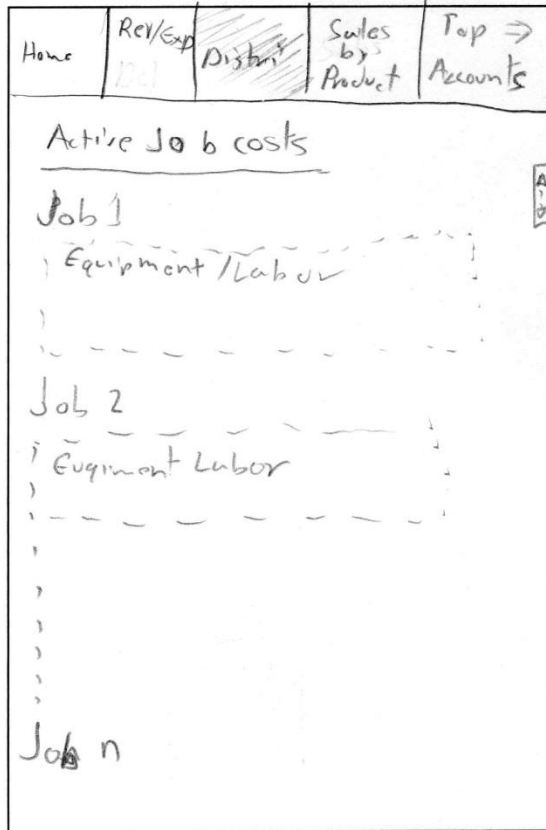 Home
Rev/Exp
Distri
Sales
by
Product
Top ⇒
Accounts
Active Job costs
Job 1
Equipment/Labor
Job 2
Euqiment Labor
Job n